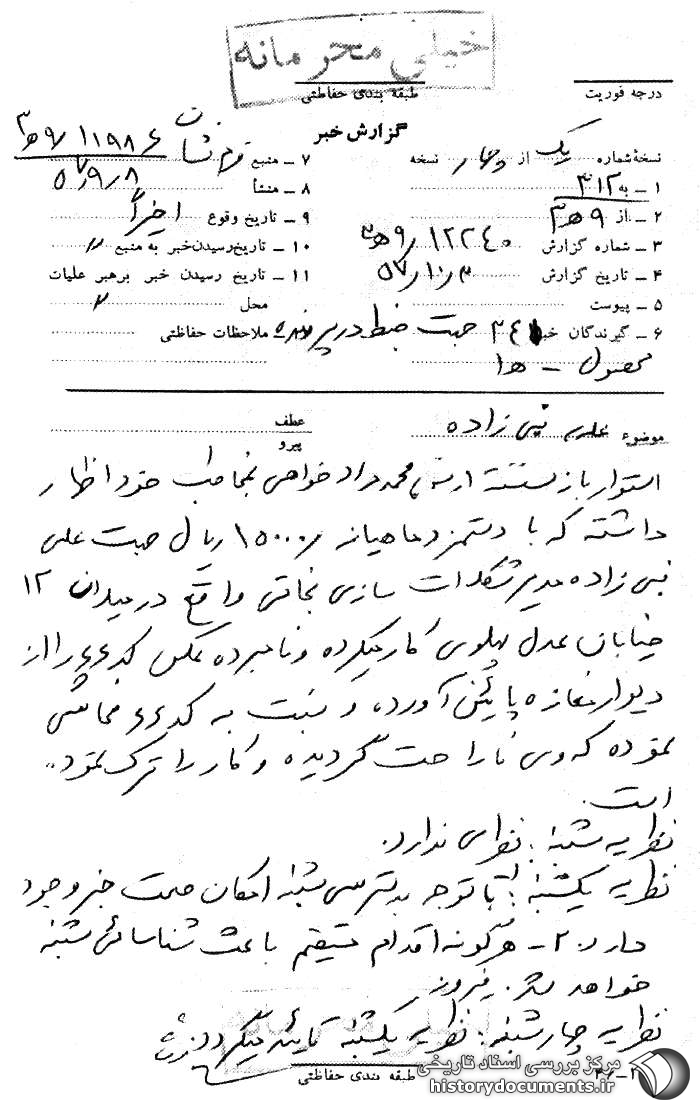 خیلی محرمانه
درجه فوریت
طبقه بندی حفاظتی
گزارش خبر
نسخه شماره یک از چهار نسخه
۱ - به ۳۱۲
۲ - از ۹ ه‍ ۳
۳ - شماره گزارش ۱۲۲۴۰ / ۹ ه‍ ۳
۴ - تاریخ گزارش ۵۷/۱۰/۳
۵ - پیوست
۶ - گیرندگان خبر ۳۴۱ جهت ضبط در پرونده
محصول - ه‍ ۱
۷ - منبع ۱۱۹۸۶ / ۹ ه‍ ۳
۸ - منشأ ۵۷/۹/۸
۹ - تاریخ وقوع اخیراً
۱۰ - تاریخ رسیدن خبر به منبع ۷
۱۱ - تاریخ رسیدن خبر برهبر عملیات
محل ۷
ملاحظات حفاظتی
موضوع علی نبی زاده
عطف
پیرو
استوار بازنشسته ارتش محمد مرادخواهی بمخاطب خود اظهار
داشته که با دستمزد ماهیانه ۱۵۰۰۰ ریال جهت علی
نبی زاده مدیر شکلات سازی نجاتی واقع در میدان ۱۲
خیابان عدل پهلوی کار میکرده و نامبرده عکس کدءءپر را از
دیوار مغازه پائین آورده و نسبت به کدءء فحاشی
نموده که وی ناراحت گردیده و کار را ترک نموده
است.
نظریه شنبه : نظری ندارد.
نظریه یکشنبه : ۱- با توجه بدسترسی شنبه امکان صحت خبر وجود
دارد. ۲- هرگونه اقدام مستقیم باعث شناسائی شنبه
خواهد شد. فیروز
نظریه چهارشنبه : نظریه یکشنبه تأیید میگردد.
خیلی محرمانه
طبقه بندی حفاظتی
مرکز بررسی اسناد تاریخی
historydocuments.ir